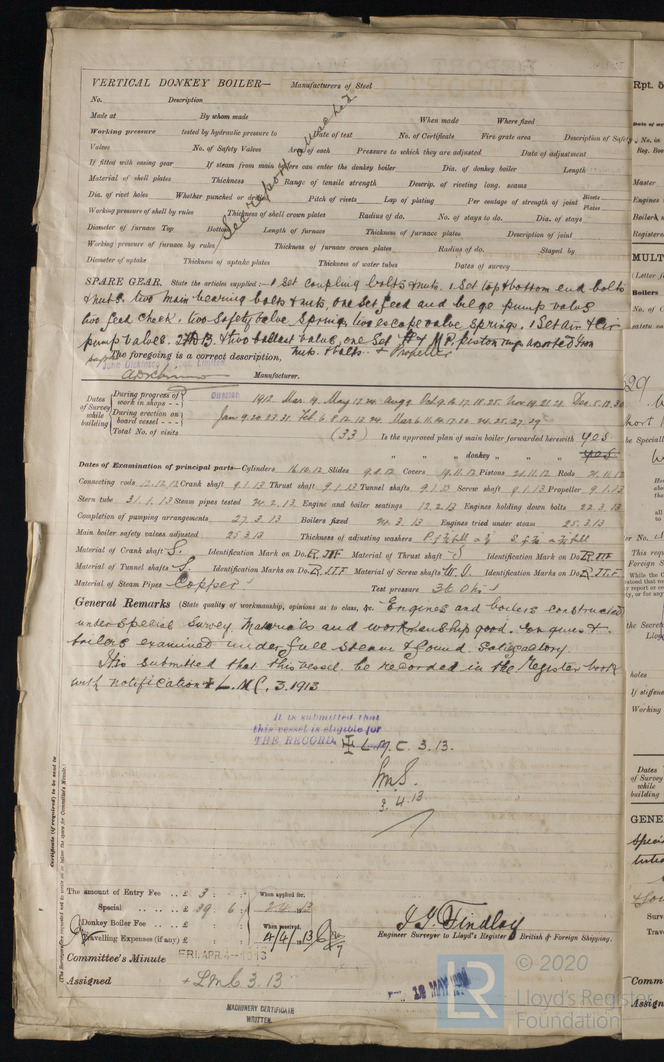 VERTICAL DONKEY BOILER— Manufacturers of Steel
No. Description
Made at By whom made When made Where fixed
Working pressure tested by hydraulic pressure to Date of test No. of Certificate Fire grate area Description of Safety
Valves No. of Safety Valves Area of each Pressure to which they are adjusted Date of adjustment
If fitted with easing gear If steam from main boilers can enter the donkey boiler Dia. of donkey boiler Length
Material of shell plates Thickness Range of tensile strength Descrip. of riveting long. seams
Dia. of rivet holes Whether punched or drilled Pitch of rivets Lap of plating Per centage of strength of joint Rivets Plates
Working pressure of shell by rules Thickness of shell crown plates Radius of do. No. of stays to do. Dia. of stays
Diameter of furnace Top Bottom Length of furnace Thickness of furnace plates Description of joint
Working pressure of furnace by rules Thickness of furnace crown plates Radius of do. Stayed by
Diameter of uptake Thickness of uptake plates Thickness of water tubes Dates of survey
See report attached
SPARE GEAR. State the articles supplied:— 1 Set coupling bolts & nuts. 1 Set top & bottom end bolts
& nuts. two main bearing bolts & nuts, one set feed and bilge pump valves
two feed check. two safety valve springs, two escape valve springs. 1 Set air & Cir
pump valves. & two ballast valves, one set M.P. piston rings assorted iron
nuts & bolts. & Propeller
The foregoing is a correct description,
John Dickinson Limited
Manufacturer.
Director
Dates of Survey while building
During progress of work in shops - - 1912 Mar. 19. May 17.24. Aug 9. Oct 9.16.17.18.25. Nov. 14.21.28. Dec. 5.12.30
During erection on board vessel - - - Jan 9.20.23.31 Feb 6.8.12.13.24. Mar 6.11.14.17.20.24.25.27.29
Total No. of visits (33) Is the approved plan of main boiler forwarded herewith yes
" " " donkey " " " yes
Dates of Examination of principal parts—Cylinders 16.10.12 Slides 9.8.12 Covers 14.11.12 Pistons 21.11.12 Rods 21.11.12
Connecting rods 12.12.12 Crank shaft 9.1.13 Thrust shaft 9.1.13 Tunnel shafts 9.1.13 Screw shaft 9.1.13 Propeller 9.1.13
Stern tube 31.1.13 Steam pipes tested 24.2.13 Engine and boiler seatings 12.2.13 Engines holding down bolts 22.3.13
Completion of pumping arrangements 27.3.13 Boilers fixed 24.3.13 Engines tried under steam 25.3.13
Main boiler safety valves adjusted 25.3.13 Thickness of adjusting washers
Material of Crank shaft S. Identification Mark on Do. Material of Thrust shaft S Identification Mark on Do.
Material of Tunnel shafts S. Identification Marks on Do. Material of Screw shafts W.I. Identification Marks on Do.
Material of Steam Pipes Copper Test pressure
General Remarks (State quality of workmanship, opinions as to class, &c. Engines and boilers constructed
under special survey. Materials and workmanship good. Engines &
boilers examined under full steam & found satisfactory.
It is submitted that this vessel be recorded in the Register book
with notification + L.M.C. 3.1913
It is submitted that
this vessel is eligible for
THE RECORD. + L.M.C. 3.13.
3.4.13
Certificate (if required) to be sent to
(The Surveyors are requested not to write on or below the space for Committee's Minute.)
The amount of Entry Fee .. £ 3 : : When applied for,
Special .. .. .. £ 29 : 6 :
Donkey Boiler Fee .. £ : : When received,
Travelling Expenses (if any) £ : : 4/4/13
J.G. Findlay
Engineer Surveyor to Lloyd's Register of British & Foreign Shipping.
Committee's Minute FRI. APR. 4 - 1913
Assigned + LMC 3.13
MACHINERY CERTIFICATE
WRITTEN.
© 2020
LR
Lloyd's Register
Foundation
Rpt. 5
No. in
Reg. Boo
Master
Engines
Boilers
Registere
MULT
(Letter f
Boilers
No. of C
Working
Dates
of Survey
while
building
GENE
Surv
Trav
Comm
Assign